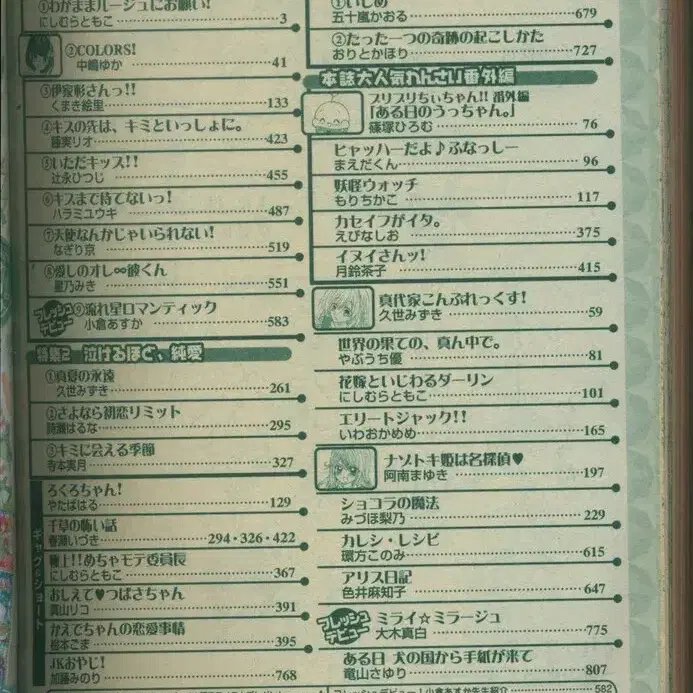 ①わがままルージュにお願い!
にしむらともこ 3
②COLORS!
中嶋ゆか 41
③伊家彰さんっ!!
くまき絵里 133
④キスの先は、キミといっしょに。
藤実リオ 423
⑤いただキッス!!
辻永ひつじ 455
⑥キスまで待てないっ!
ハラミユウキ 487
⑦天使なんかじゃいられない!
なぎり京 519
⑧愛しのオレ∞彼くん
星乃みき 551
フレッシュデビュー
⑨流れ星ロマンティック
小倉あすか 583
特集2 泣けるほど、純愛
①真夏の永遠
久世みずき 261
②さよなら初恋リミット
綺瀬はるな 295
③キミに会える季節
寺本実月 327
ギャグ&ショート
ろくろちゃん!
やたばはる 129
千草の怖い話
春瀬いづき 294・326・422
極上!!めちゃモテ委員長
にしむらともこ 367
おしえて♥つばさちゃん
真山リコ 391
かえでちゃんの恋愛事情
桜本ごま 395
JKおやじ!
加藤みのり 768
①いじめ
五十嵐かおる 679
②たった一つの奇跡の起こしかた
おりとかほり 727
本誌大人気わんさい番外編
プリプリちぃちゃん!! 番外編
「ある日のうっちゃん。」
篠塚ひろむ 76
ヒャッハーだよ♪ふなっしー
まえだくん 96
妖怪ウォッチ
もりちかこ 117
カセイフがイタ。
えびなしお 375
イヌイさんッ!
月鈴茶子 415
真代家こんぷれっくす!
久世みずき 59
世界の果ての、真ん中で。
やぶうち優 81
花嫁といじわるダーリン
にしむらともこ 101
エリートジャック!!
いわおかめめ 165
ナゾトキ姫は名探偵♥
阿南まゆき 197
ショコラの魔法
みづほ梨乃 229
カレシ・レシピ
環方このみ 615
アリス日記
色井麻知子 647
フレッシュデビュー
ミライ☆ミラージュ
大木真白 775
ある日 犬の国から手紙が来て
竜山さゆり 807
フレッシュデビュー!小倉あすか先生紹介 582